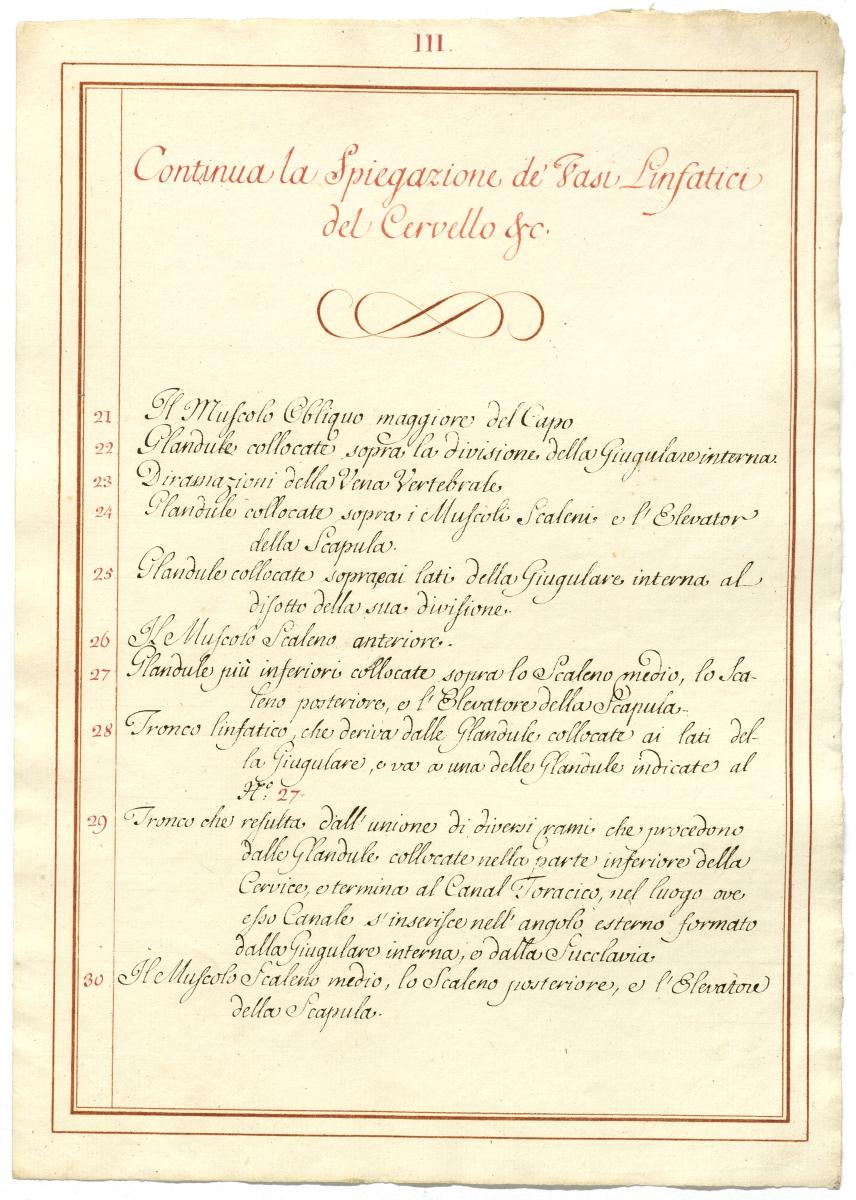 III.
3
Continua la Spiegazione de' Vasi Linfatici
del Cervello &c.
21 Il Muscolo Obliquo maggiore del Capo
22 Glandule collocate sopra la divisione della Giugulare interna.
23 Diramazioni della Vena Vertebrale
24 Glandule collocate sopra i Muscoli Scaleni e l'Elevator
della Scapula.
25 Glandule collocate sopra, e ai lati della Giugulare interna al
disotto della sua divisione.
26 Il Muscolo Scaleno anteriore.
27 Glandule più inferiori collocate sopra lo Scaleno medio, lo Sca-
leno posteriore, e l'Elevatore della Scapula.
28 Tronco linfatico, che deriva dalle Glandule collocate ai lati del-
la Giugulare, e va a una delle Glandule indicate al
N.º: 27.
29 Tronco che resulta dall'unione di diversi rami che procedono
dalle Glandule collocate nella parte inferiore della
Cervice, e termina al Canal Toracico, nel luogo ove
esso Canale s'inserisce nell'angolo esterno formato
dalla Giugulare interna, e dalla Succlavia
30 Il Muscolo Scaleno medio, lo Scaleno posteriore, e l'Elevatore
della Scapula.